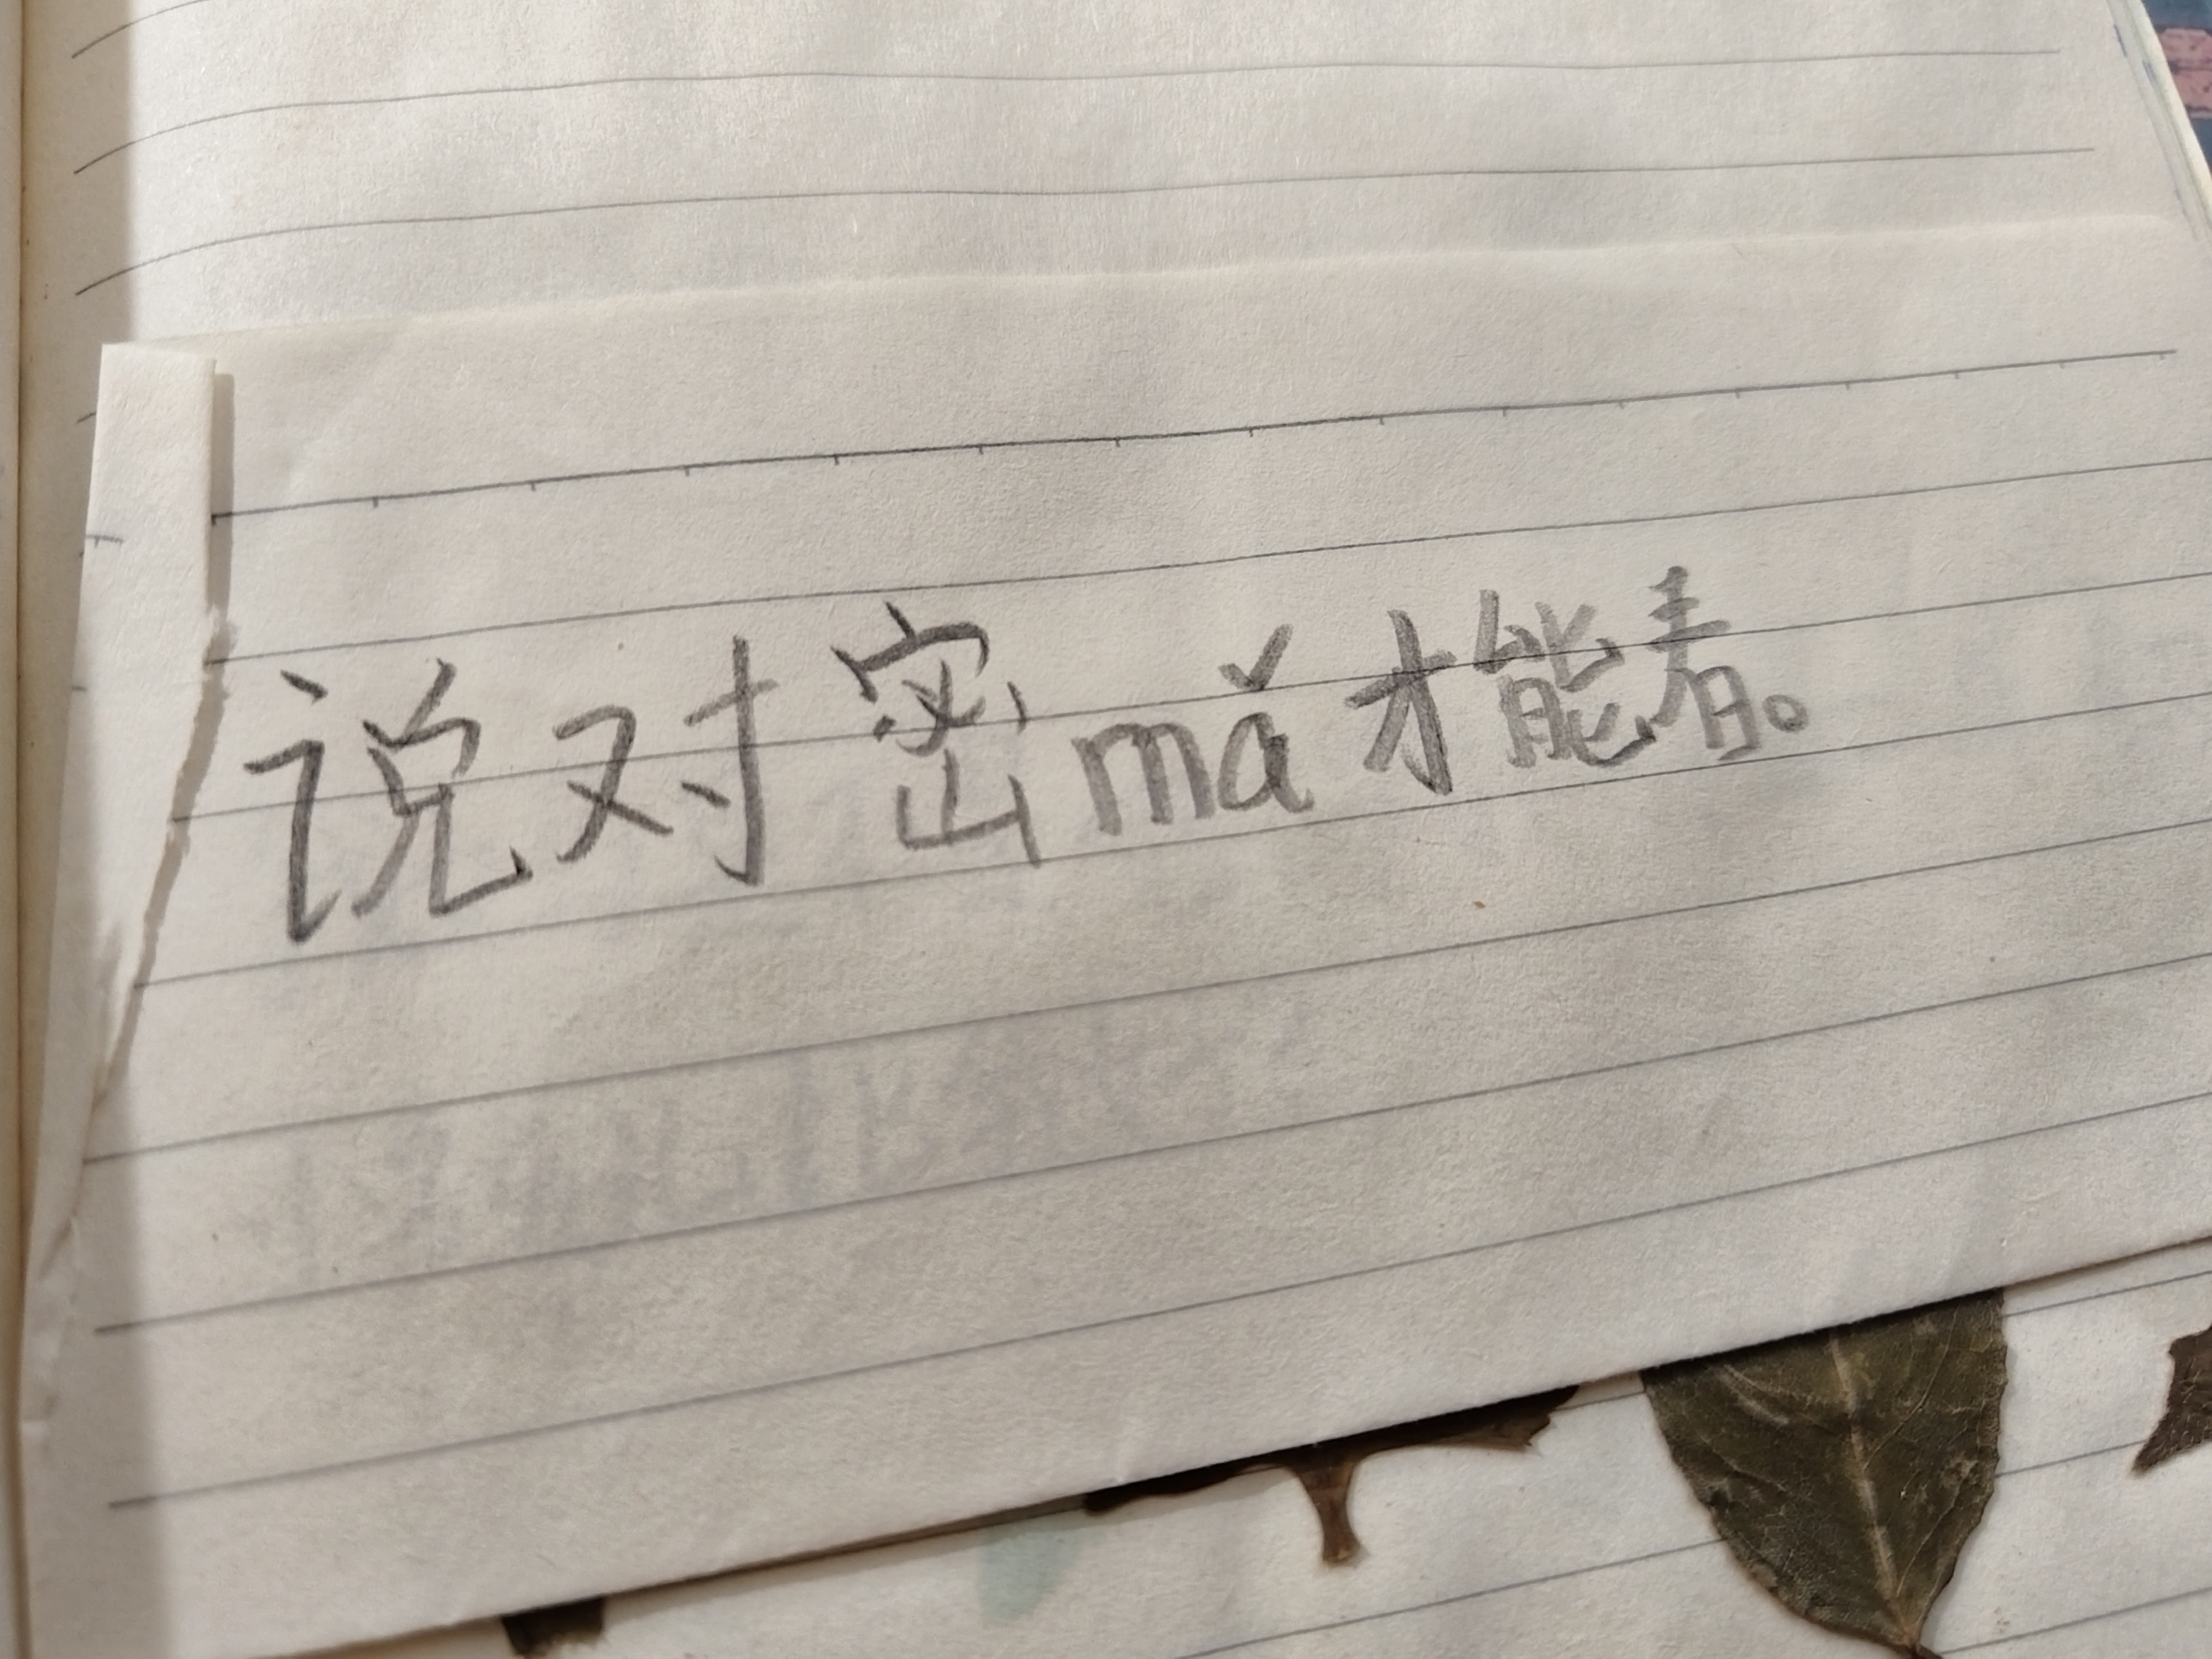 说对密mǎ才能看。